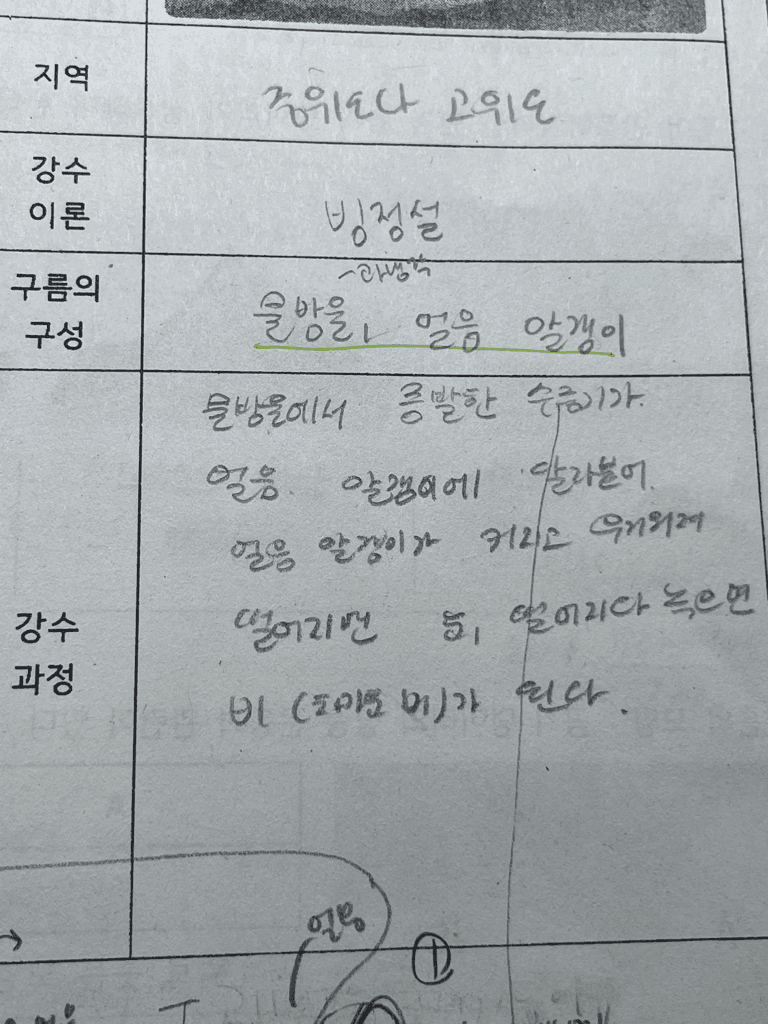 지역
중위도나 고위도
강수
이론
빙정설
구름의
구성
과냉각
물방울, 얼음 알갱이
물방울에서 증발한 수증기가
얼음 알갱이에 달라붙어
얼음 알갱이가 커지고 무거워져
강수
과정
떨어지면 눈, 떨어지다 녹으면
비 ( 비)가 된다.
→
얼음
①